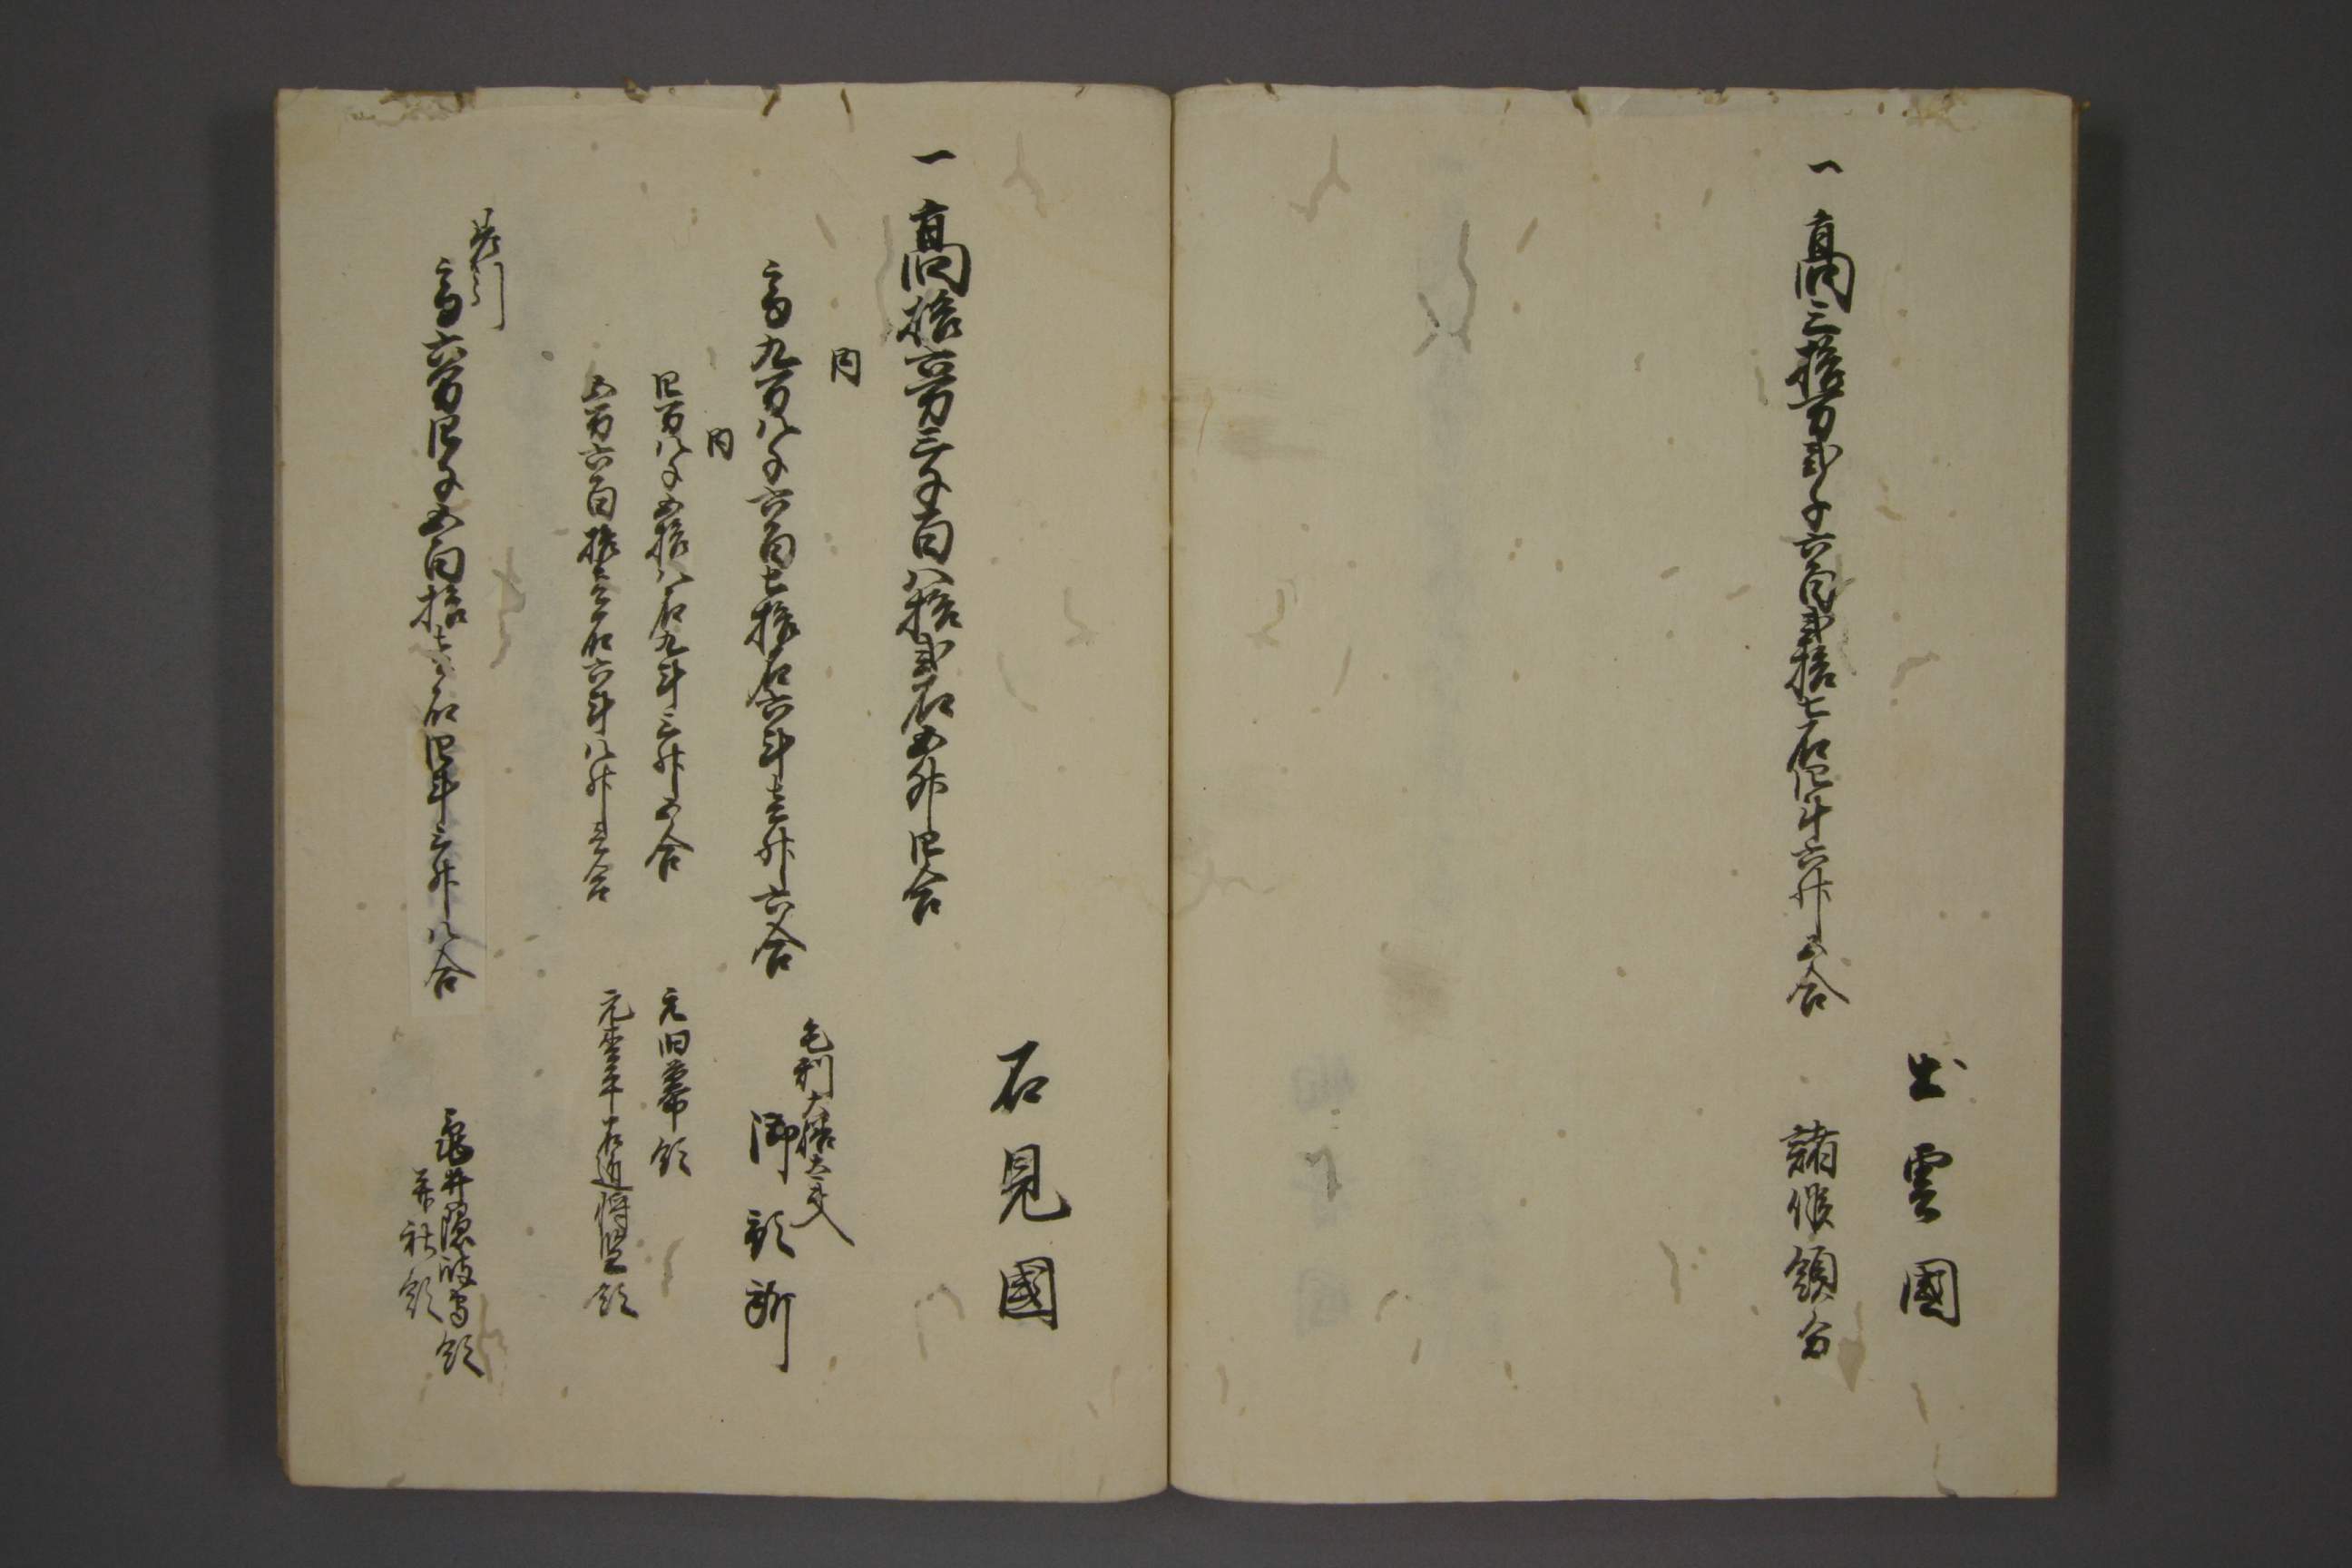 出雲國
一高三拾万弐千六百弐拾七石四斗六升五合
諸侯領分
石見國
一高拾六万三千百八拾弐石五升四合
内
高九万八千六百七拾石六斗壱升六合
毛利大膳大夫
御預所
内
四万八千五拾八石九斗三升五合
元旧幕領
五万六百拾壱石六斗八升壱合
元松平右近将監領
差引
高六万四千五百拾壱石四斗三升八合
亀井隠岐守領
并社領